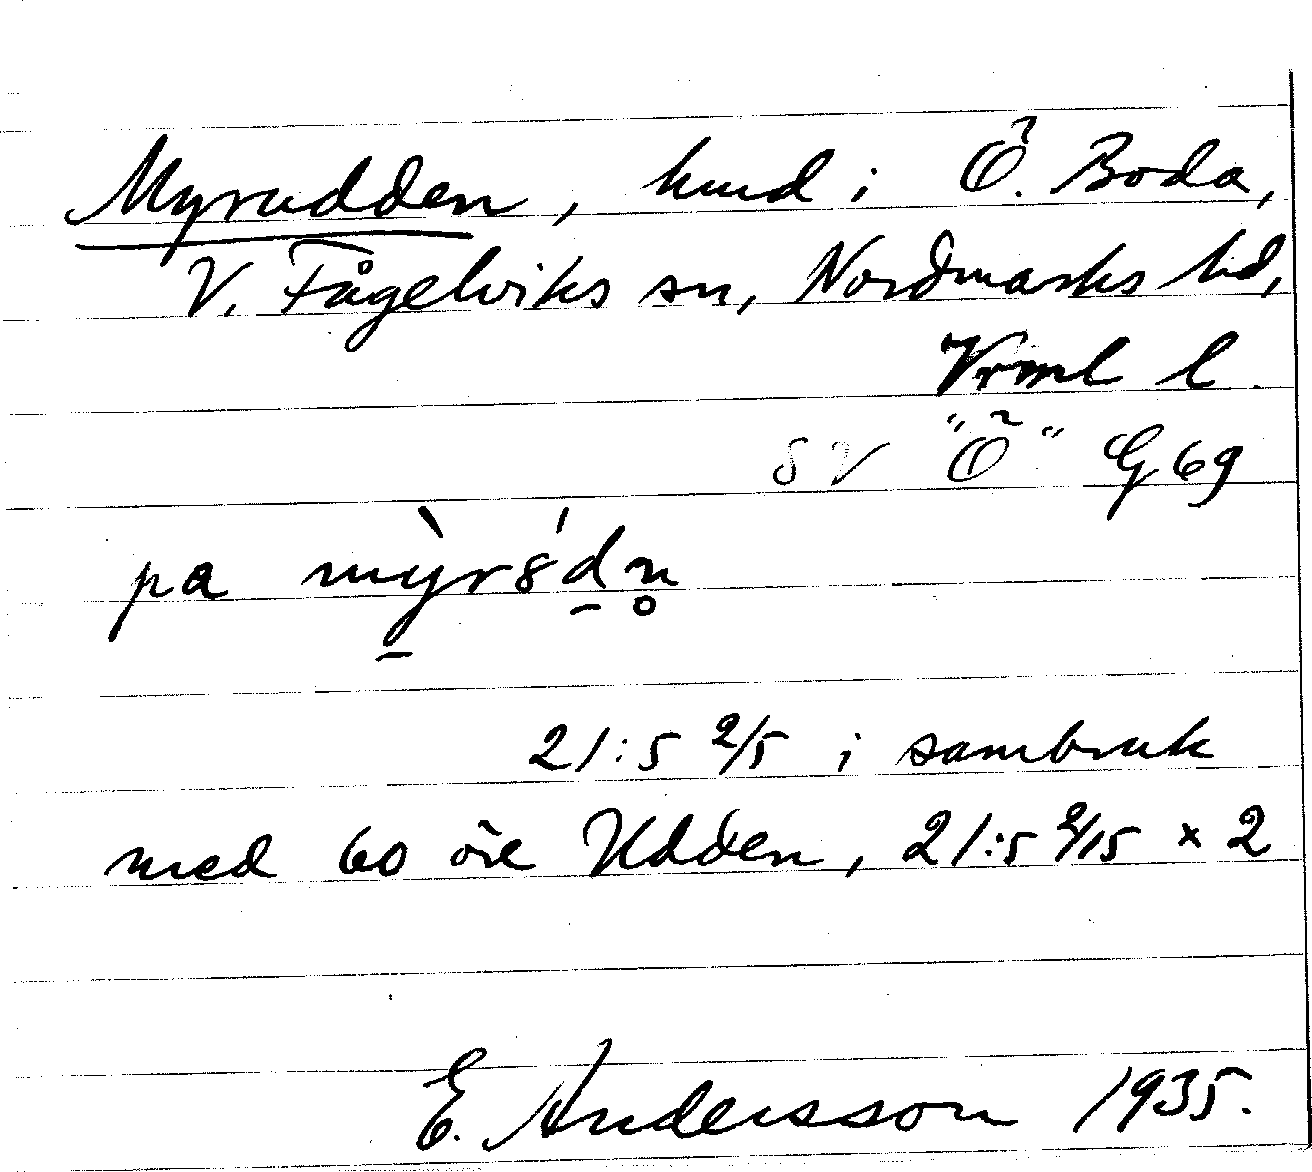 Myrudden, hmd i Ö. Boda,
V. Fågelviks sn, Nordmarks hd,
Vrml l.
SV "Ö" G69
pa
21:5 2/5 i sambruk
med 60 öre Udden, 21:5 2/15 × 2
E. Andersson 1935.